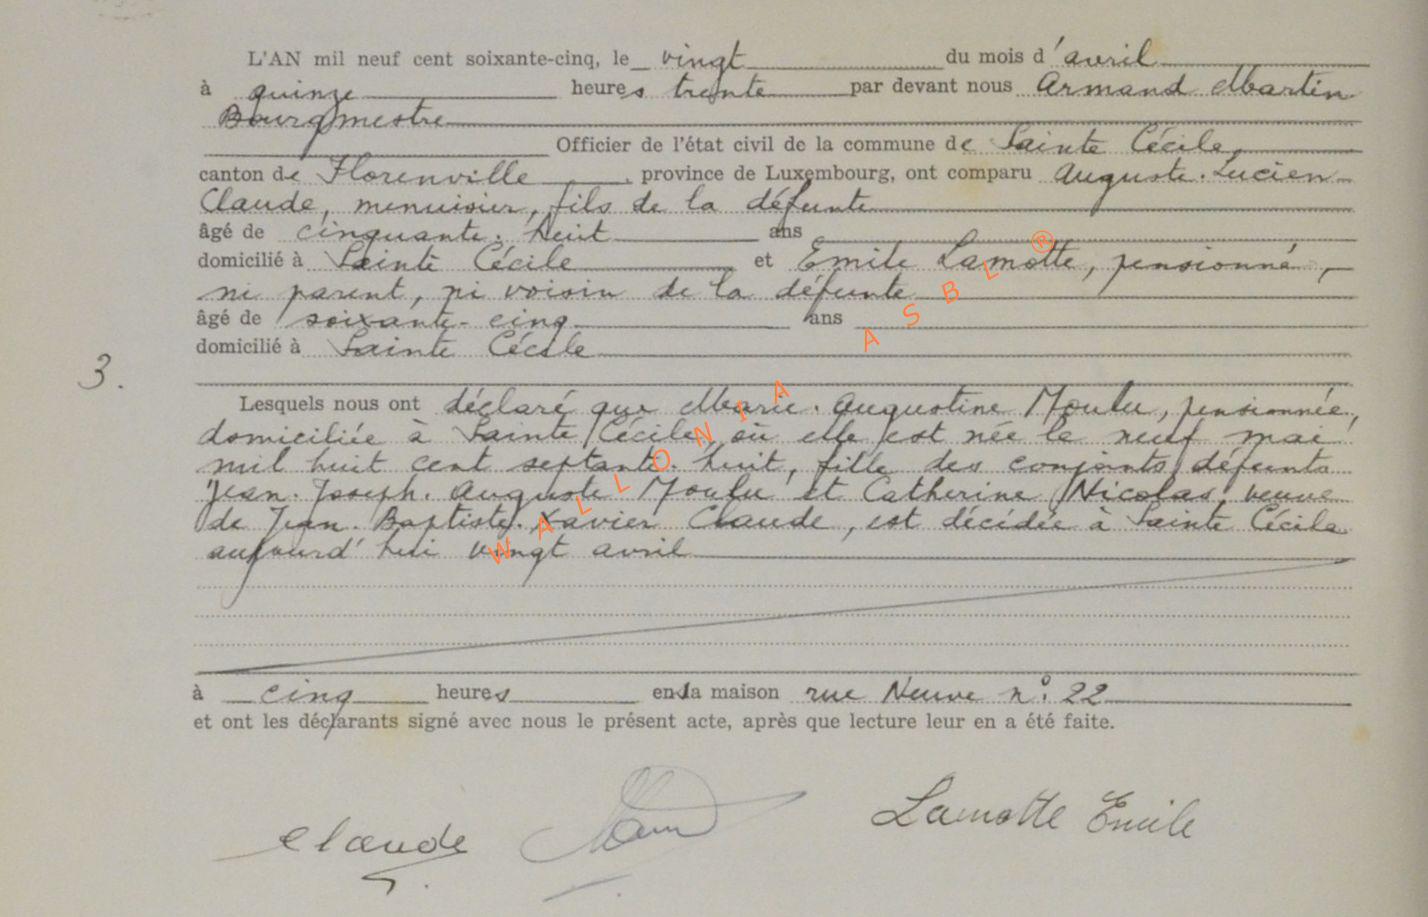 L'AN mil neuf cent soixante-cinq, le vingt du mois d'avril
à quinze heures trente par devant nous Armand Martin
Bourgmestre
Officier de l'état civil de la commune de Sainte Cécile,
canton de Florenville, province de Luxembourg, ont comparu Auguste. Lucien
Claude, menuisier, fils de la défunte
âgé de cinquante. huit ans
domicilié à Sainte Cécile et Emile Lamotte, pensionné,
ni parent, ni voisin de la défunte
âgé de soixante-cinq ans
domicilié à Sainte Cécile
3.
Lesquels nous ont déclaré que Marie. Augustine Moulu, pensionnée,
domiciliée à Sainte Cécile, où elle est née le neuf mai
mil huit cent septante. huit, fille des conjoints défunts
Jean. Joseph. Auguste Moulu et Catherine Nicolas, veuve
de Jean. Baptiste. Xavier Claude, est décédée à Sainte Cécile
aujourd'hui vingt avril
à cinq heures en la maison rue Neuve n° 22
et ont les déclarants signé avec nous le présent acte, après que lecture leur en a été faite.
Claude Lamotte Emile
WALLONIA ASBL ®